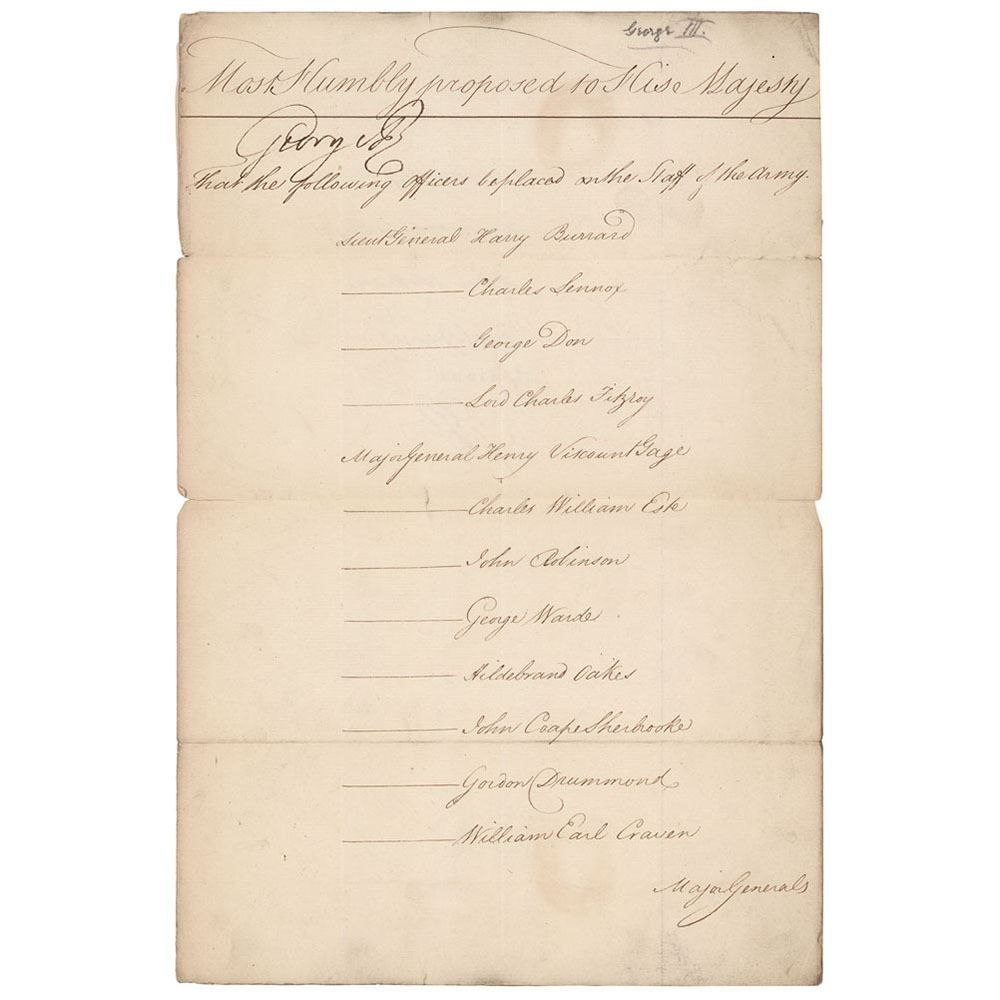 George III.
Most Humbly proposed to His Majesty
George R
That the following Officers be placed on the Staff of the Army.
Lieut General Harry Burrard
Charles Lennox
George Don
Lord Charles Fitzroy
Major General Henry Viscount Gage
Charles William Este
John Robinson
George Warde
Hildebrand Oakes
John Coape Sherbrooke
Gordon Drummond
William Earl Craven
Major Generals